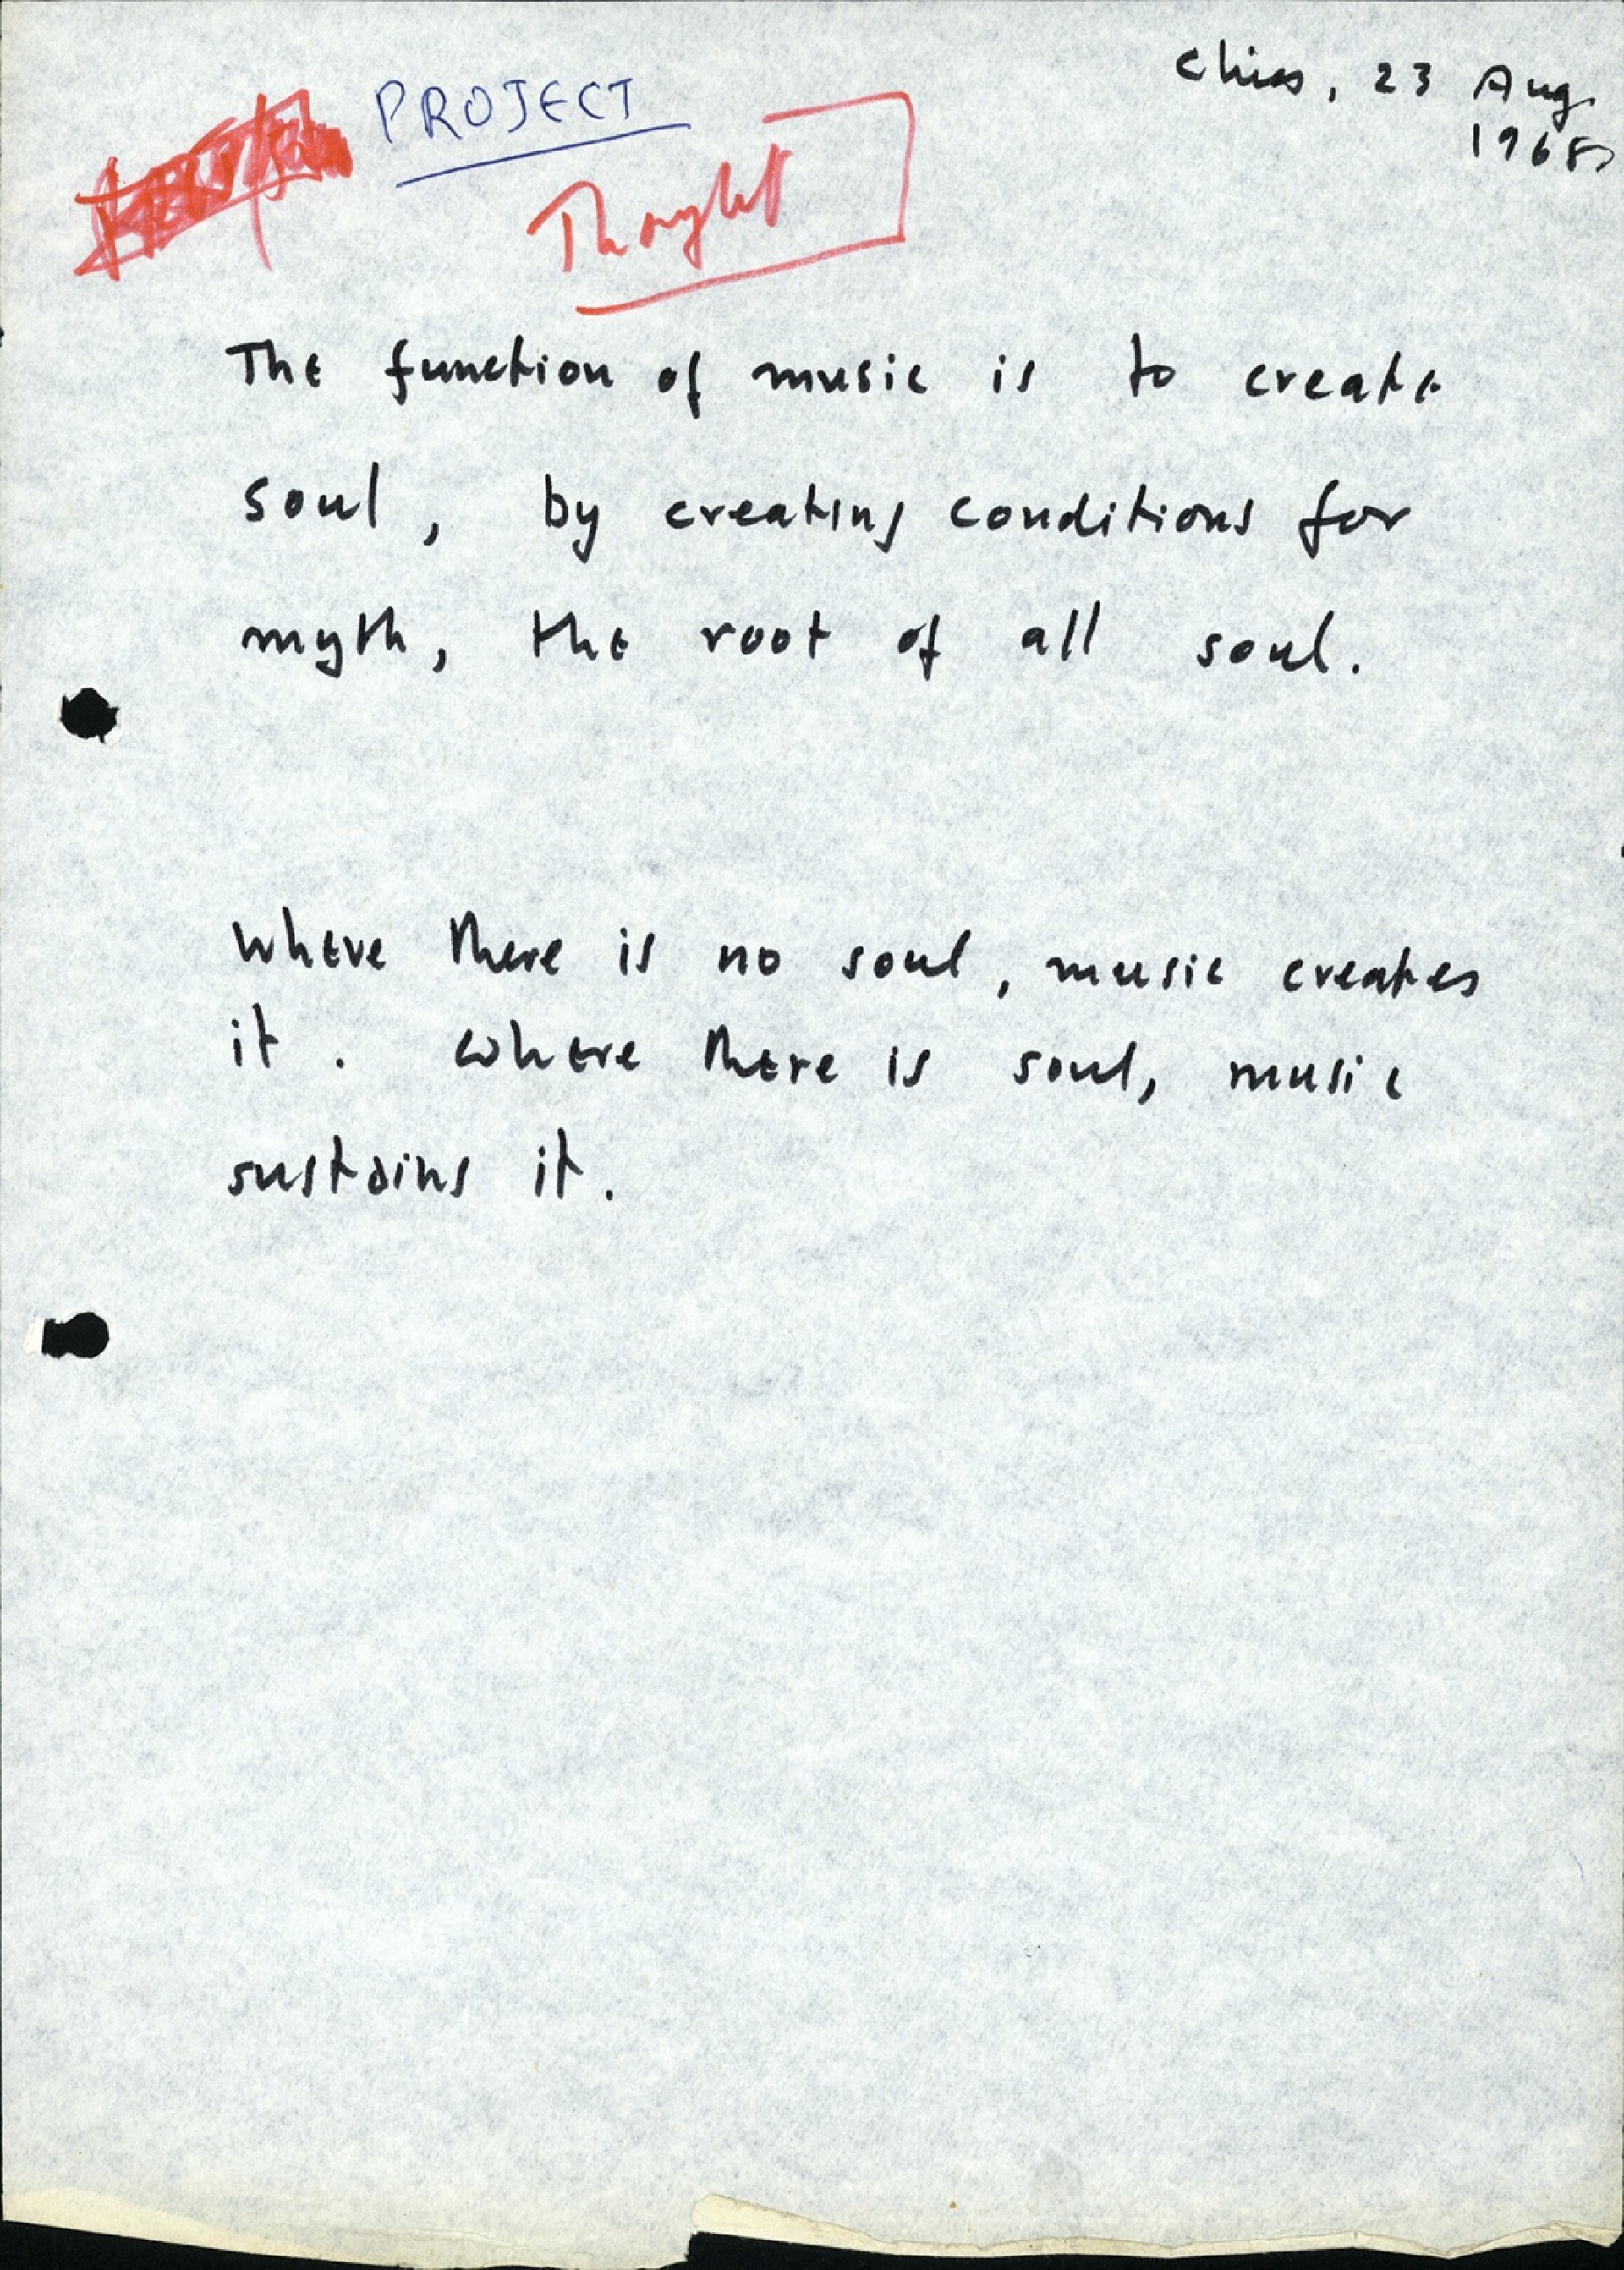 Chios, 23 Aug.
1968
PROJECT
Thought
The function of music is to create
soul, by creating conditions for
myth, the root of all soul.
Where there is no soul, music creates
it. Where there is soul, music
sustains it.